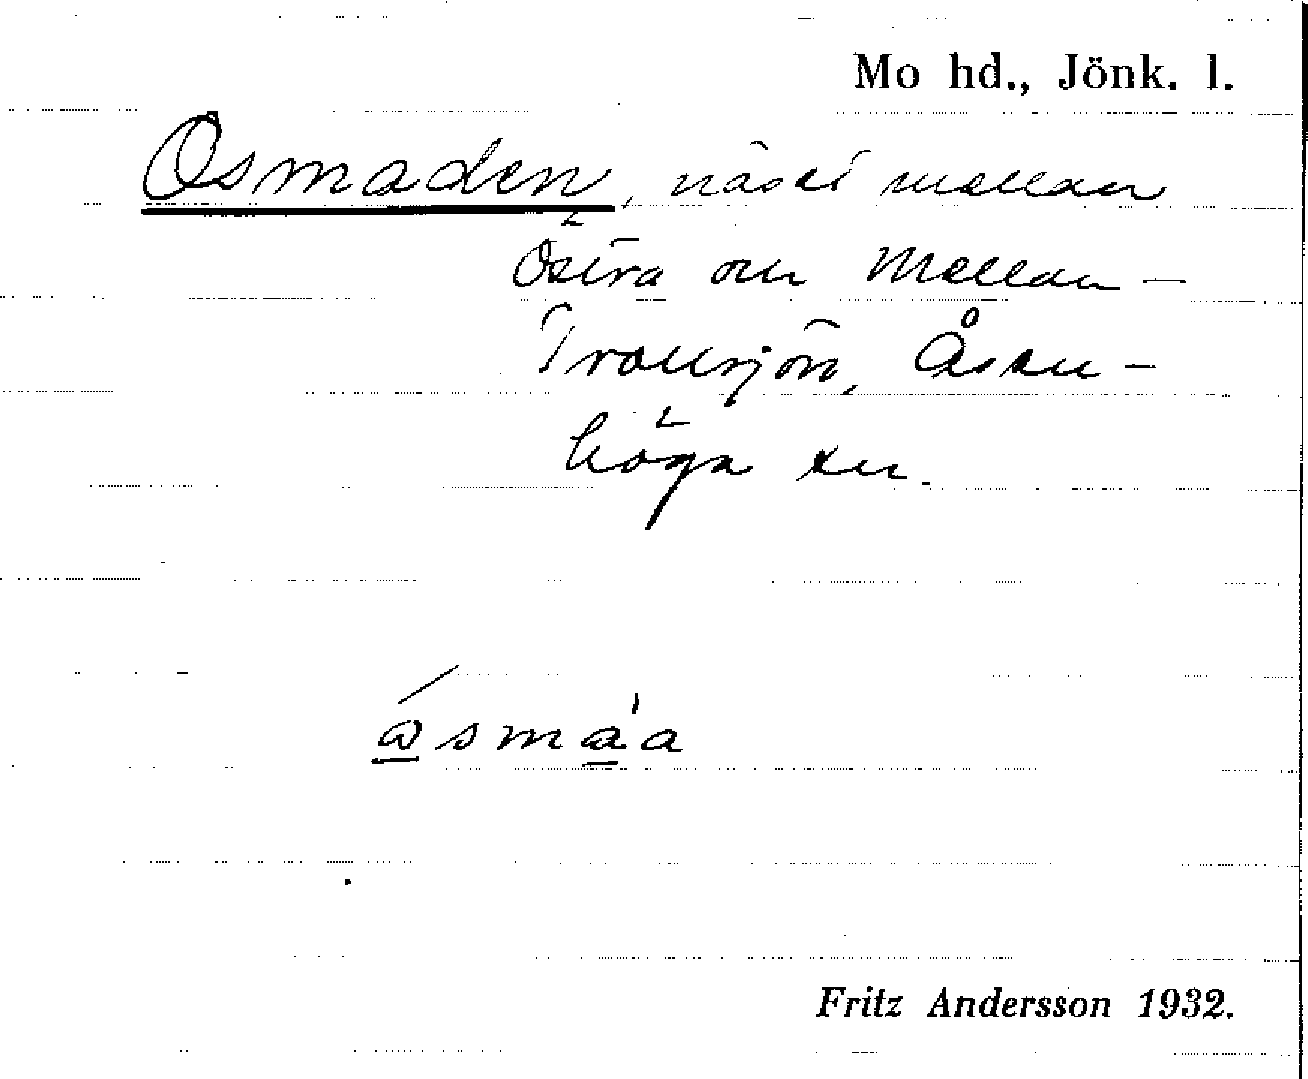 Mo hd., Jönk. l.
Osmaden, näset mellan
Östra och Mellan-
Tranesjön, Åsen-
höga sn.
ώsmáa
Fritz Andersson 1932.